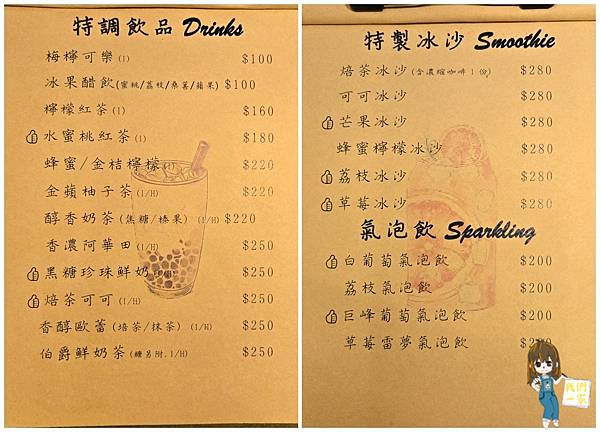 特調飲品 Drinks
梅檸可樂(I) $100
冰果醋飲(蜜桃/荔枝/桑葚/蘋果) $100
檸檬紅茶(I) $160
水蜜桃紅茶(I) $180
蜂蜜/金桔檸檬(I) $220
金蘋柚子茶(I/H) $220
醇香奶茶(焦糖/榛果) (I/H) $220
香濃阿華田(I/H) $250
黑糖珍珠鮮奶(I/H) $250
焙茶可可(I/H) $250
香醇歐蕾(焙茶/抹茶) (I/H) $250
伯爵鮮奶茶(糖另附,I/H) $250
特製冰沙 Smoothie
焙茶冰沙(含濃縮咖啡1份) $280
可可冰沙 $280
芒果冰沙 $280
蜂蜜檸檬冰沙 $280
荔枝冰沙 $280
草莓冰沙 $280
氣泡飲 Sparkling
白葡萄氣泡飲 $200
荔枝氣泡飲 $200
巨峰葡萄氣泡飲 $200
草莓蕾夢氣泡飲 $200
我們
一家